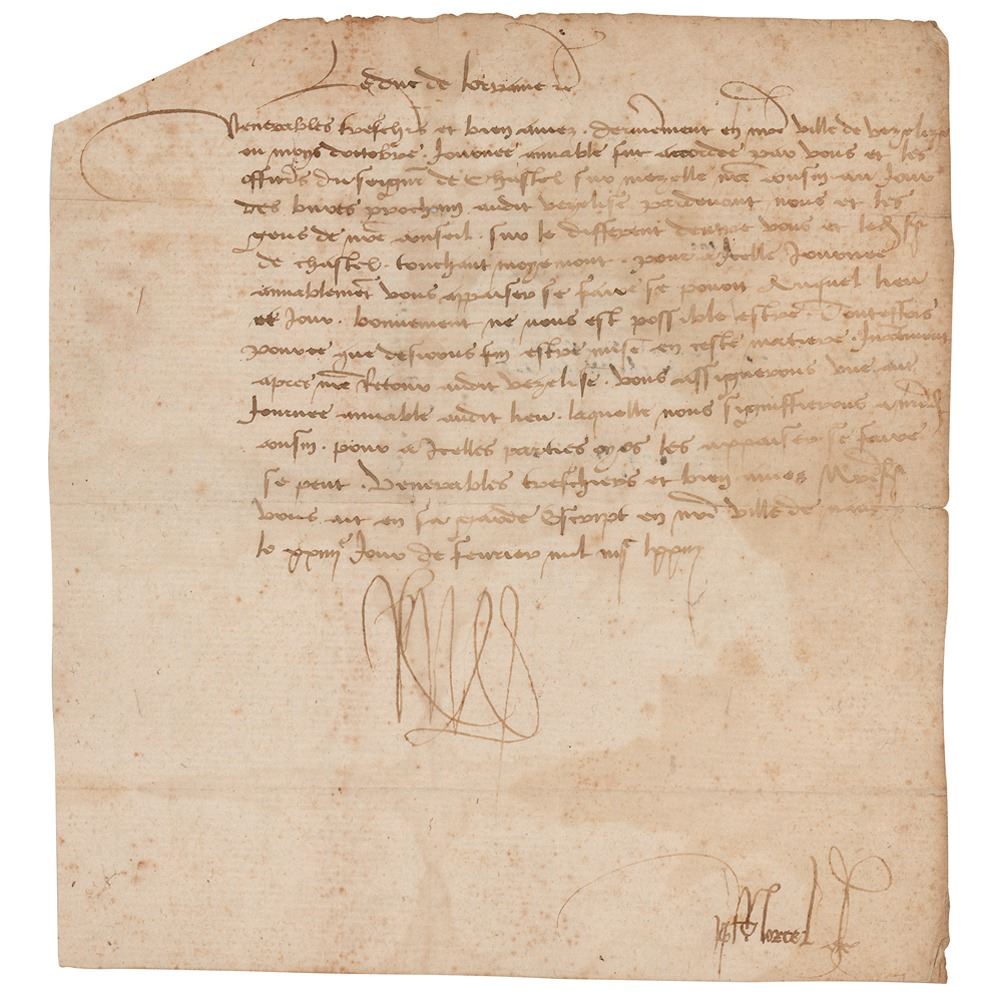 Le duc de lorraine &c
Venerables treschiers et bien amez. dernierement en nre ville de vezelize
ou moys doctobre. Journee amiable fut accordee par vous et les
officiers du seigneur de Chastel sur mezelle nre cousin au Jour
des bures prochain audit vezelise pardevant nous et les
gens de nre conseil. sur le different dentre vous et led sr
de chastel. touchant moyemont. pour a Icelle Journee
amiablement vous appaiser se faire se povoit Auquel lieu
et Jour. bonnement ne nous est possible estre. Toutesfois
pource que desirons fin estre mise en ceste matiere.
apres nre Retour audit vezelise. vous assignerons une aut
Journee amiable audit lieu. laquelle nous signiffierons a nred
cousin. pour a Icelles parties oyes les appaiser se faire
se peut. Venerables treschiers et bien amez
vous ait en sa garde Escript en nre ville de nancy
le xxiiiie Jour de fevrier mil iiiic lxxiii